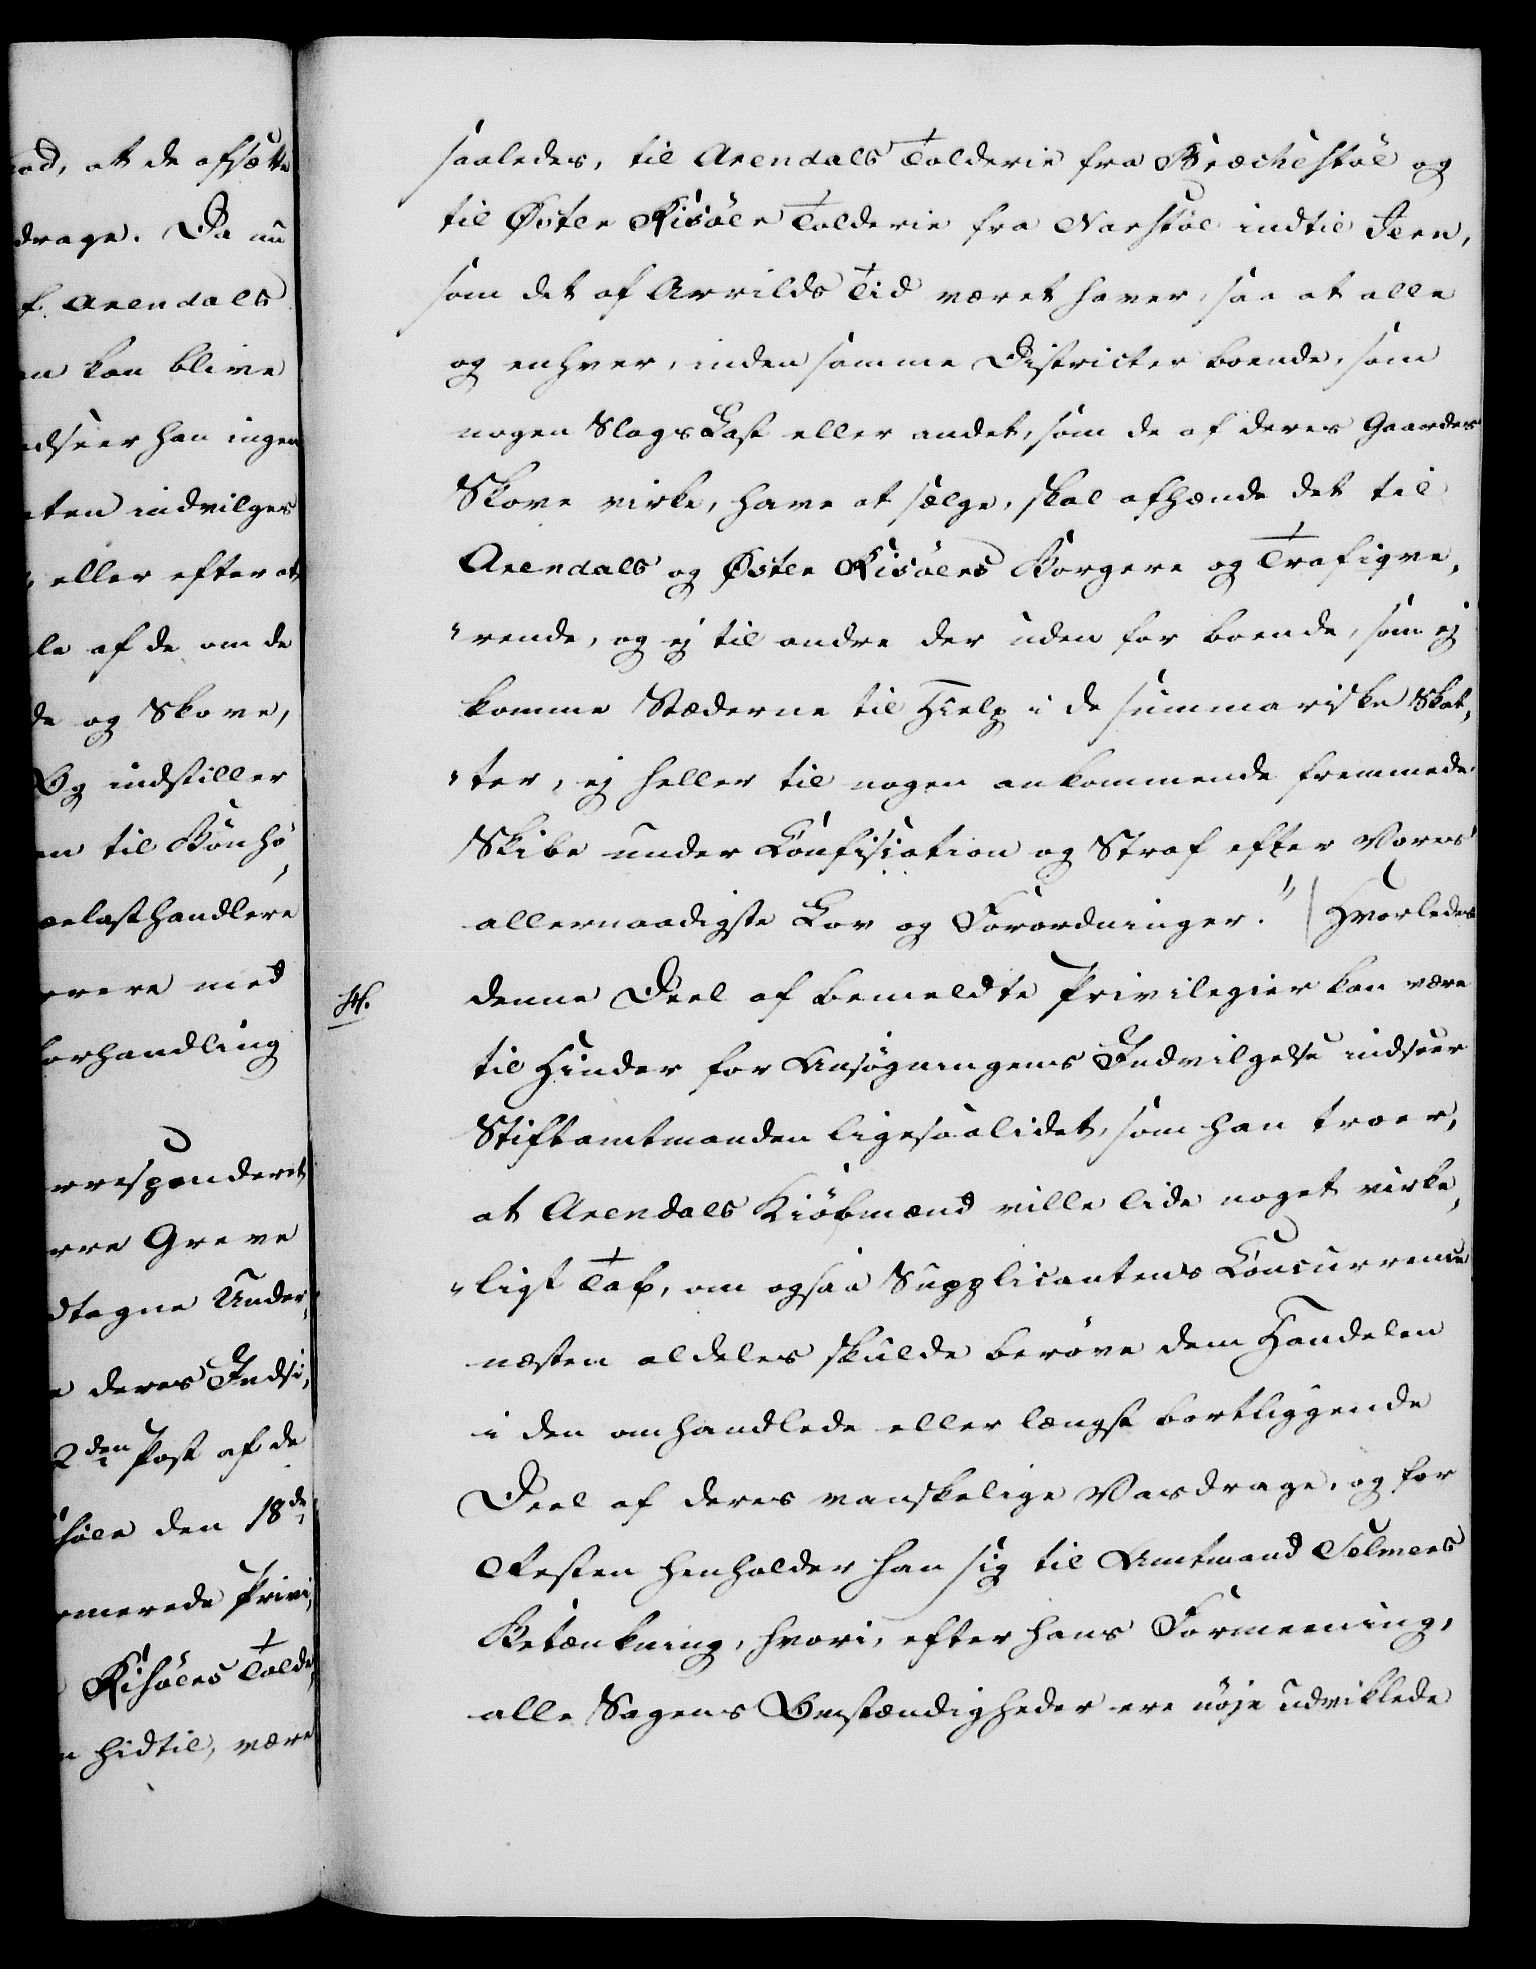 ad, at de afsætte
drage. Da nu
f. Arendals
n kan blive
dseer han ingen
ten indvilges
eller efter at
le af de om de
de og Skove,
Og indstiller
en til Bønhø,
ælasthandlere
rere med
orhandling
rresponderet
rre Greve
dtagne Under,
e deres Indsi,
2den Post af de
söer den 18de
rmerede Privi,
Risöers Tolde,
n hidtil, være
saaledes, til Arendals Tolderie fra Bræckestöe og
til Öster Risöer Tolderie fra Narestöe indtil Jern,
som det af Arrilds Tid været haver, saa at alle
og enhver, inden samme Districter boende, som
nogen Slags Last eller andet, som de af deres Gaardes
Skove virke, have at sælge, skal afhænde det til
Arendals og Öster Risöers Borgere og Trafiqve,
"rende, og ej til andre der uden for boende, som ej
komme Stæderne til Hielp i de summariske Skat,
"ter, ej heller til nogen ankommende fremmede
Skibe under Confiscation og Straf efter Vores
allernaadigste Lov og Forordninger." Hvorledes
denne Deel af bemeldte Privilegier kan være
til Hinder for Ansögningens Indvilgelse indseer
Stiftamtmanden ligesaalidet, som han troer,
at Arendals Kiöbmænd ville lide noget virke,
"ligt Tab, om ogsaa Supplicantens Concurrence
næsten aldeles skulde beröve dem Handelen
i den omhandlede eller længst bortliggende
Deel af deres vanskelige Vasdrage, og for
Resten henholder han sig til Amtmand Selmers
Betænkning, hvori, efter hans Formeening,
alle Sagens Omstændigheder ere nöje udviklede